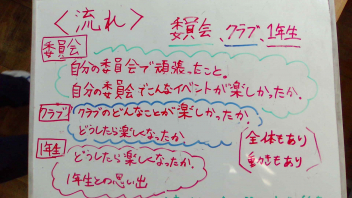 <流れ>
委員会、クラブ、1年生
委員会
自分の委員会で頑張ったこと。
自分の委員会でこんなイベントが楽しかったか。
クラブ
クラブのどんなことが楽しかったか。
どうしたら楽しくなったか
1年生
どうしたら楽しくなったか。
1年生との思い出
全体もあり
動きもあり